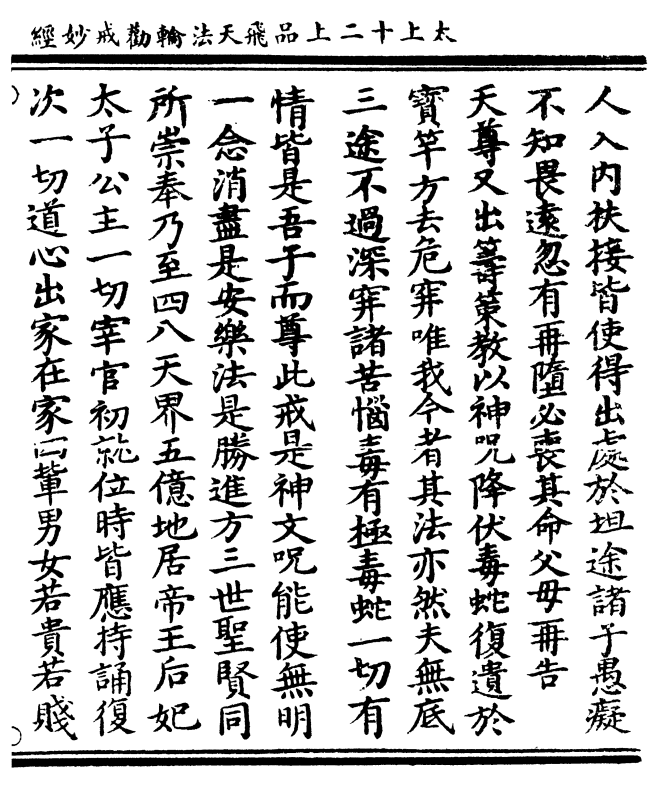 太上十二上品飛天法輪勸戒妙經
人入內扶接皆使得出處於坦途諸子愚癡
不知畏遠忽有再墮必喪其命父母再告
天尊又出籌策教以神呪降伏毒蛇復遺於
寶竿方去危穽唯我今者其法亦然夫無底
三途不過深穽諸苦惱毒有極毒蛇一切有
情皆是吾子而尊此戒是神文呪能使無明
一念消盡是安樂法是勝進方三世聖賢同
所崇奉乃至四八天界五億地居帝王后妃
太子公主一切宰官初就位時皆應持誦復
次一切道心出家在家四輩男女若貴若賤